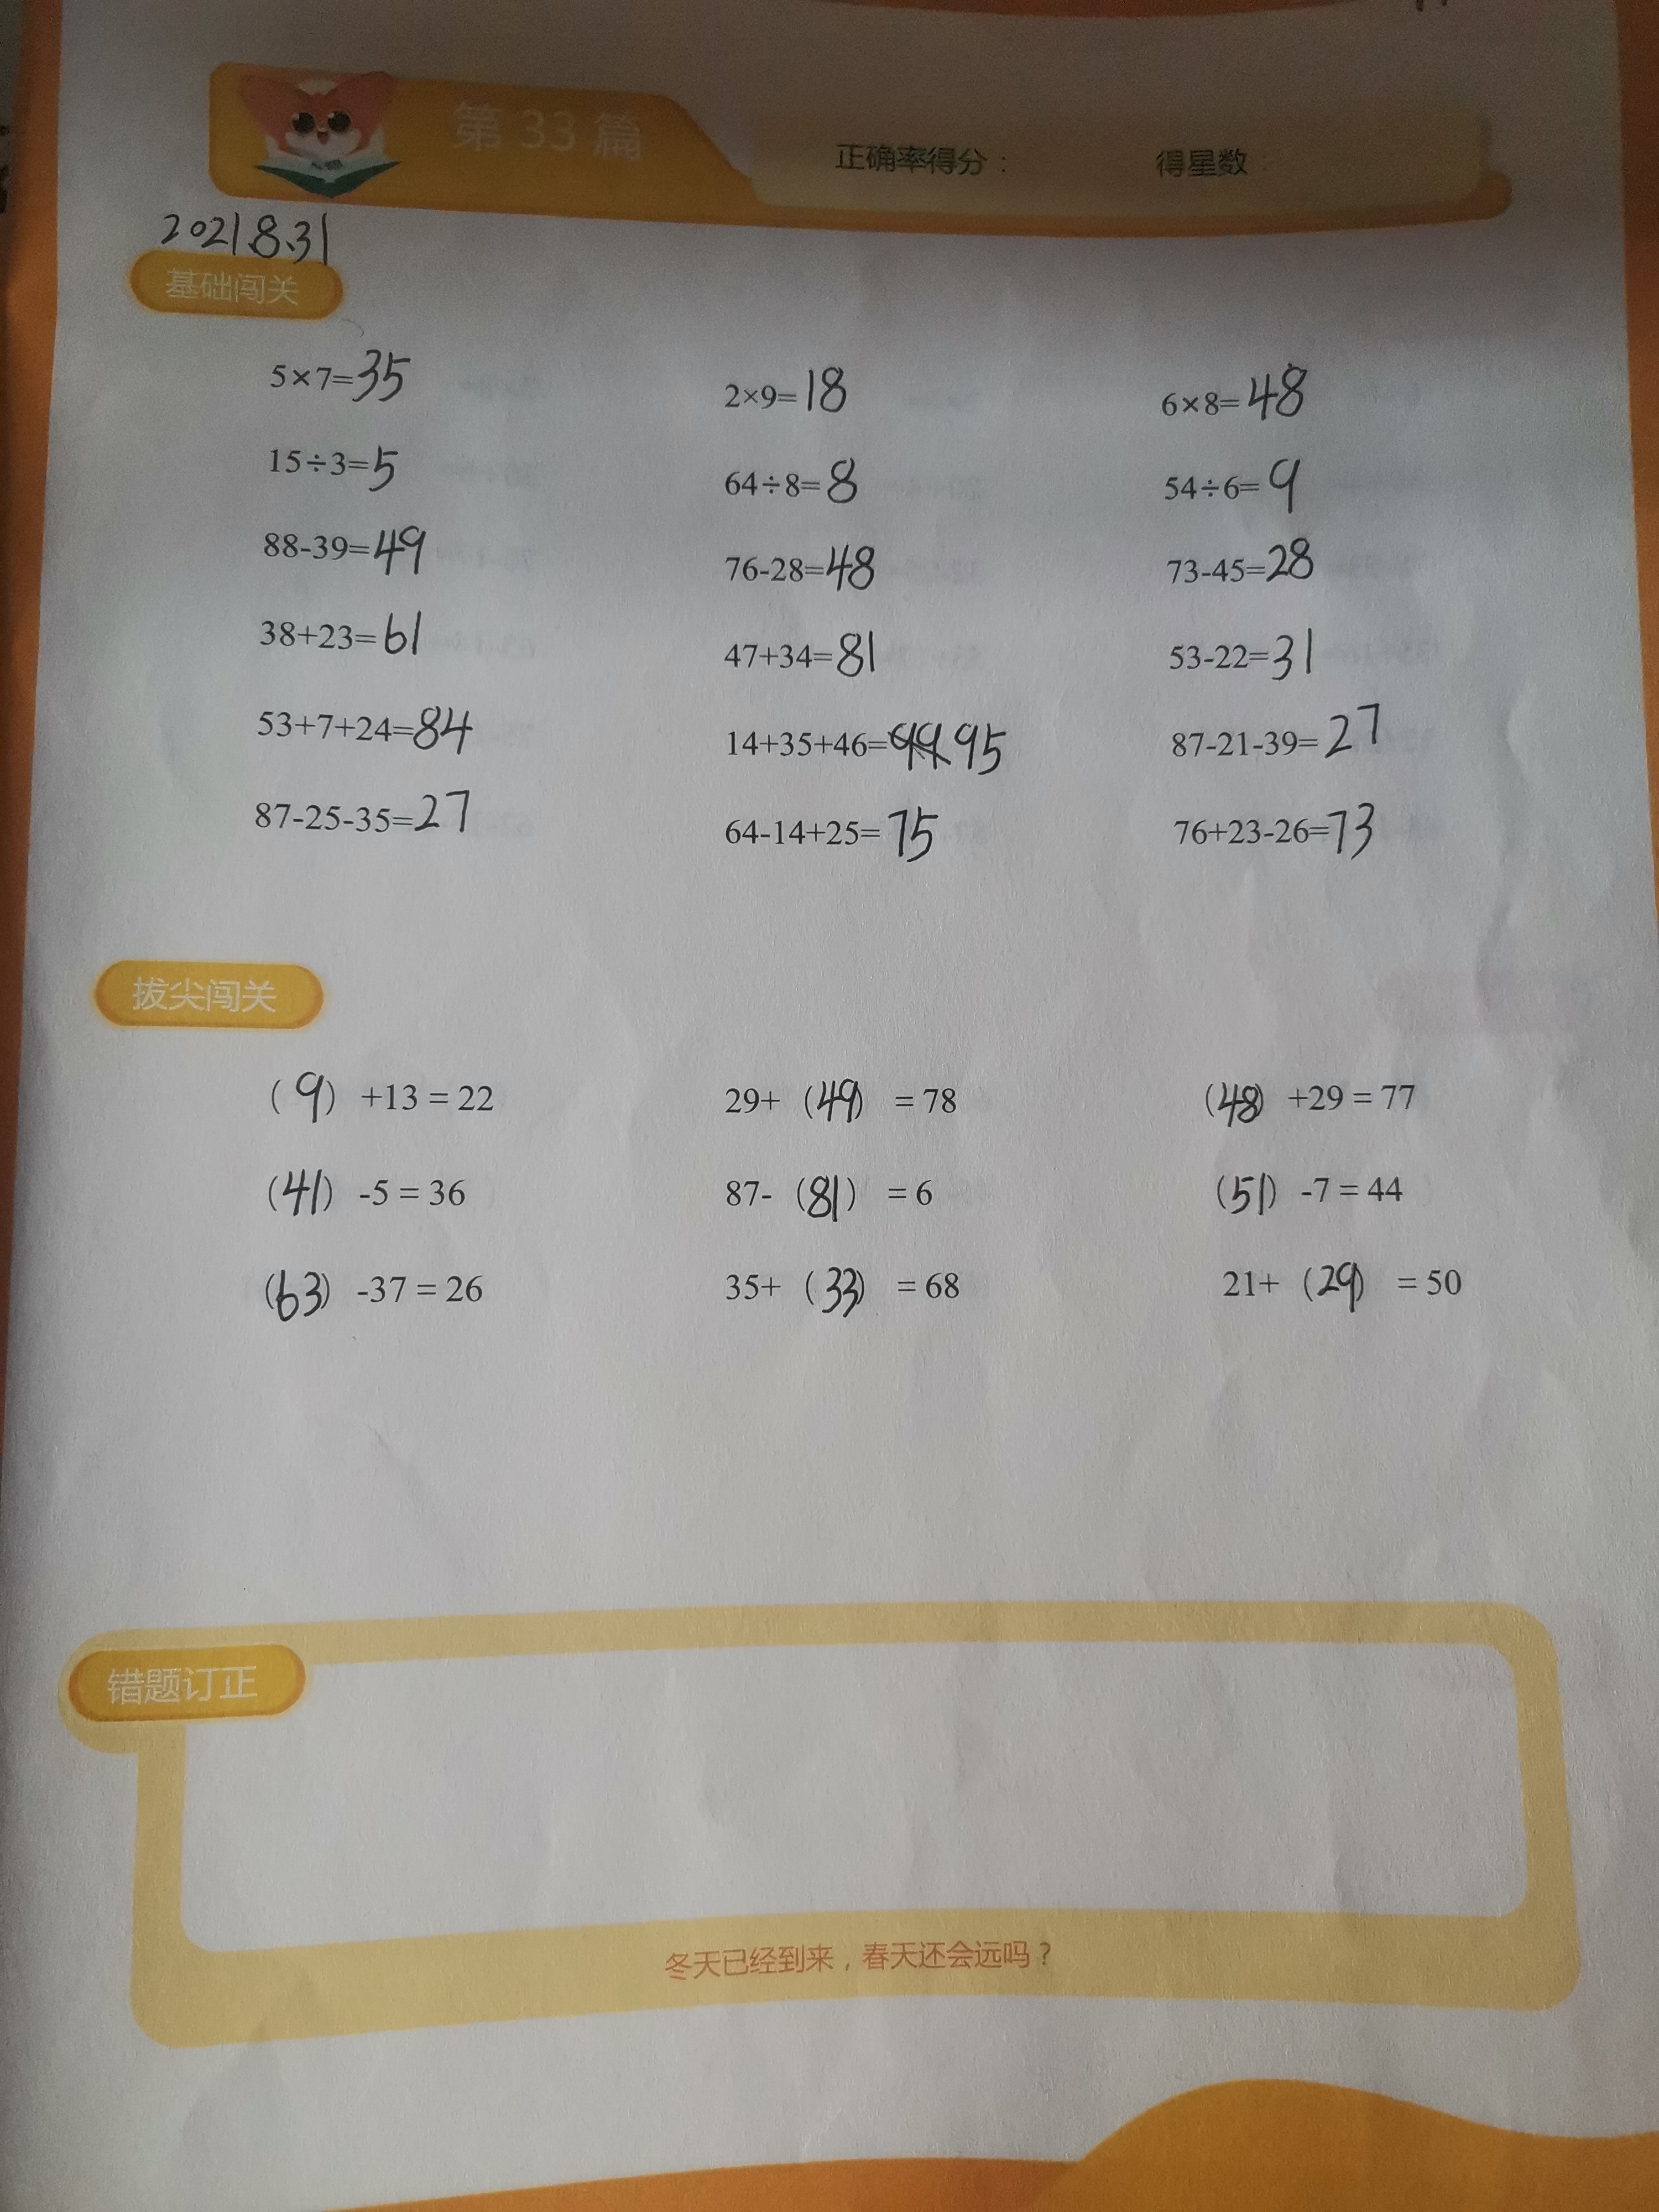 第 33 篇
正确率得分：  得星数：
2021.8.31
基础闯关
5×7=35  2×9=18  6×8=48
15÷3=5  64÷8=8  54÷6=9
88-39=49  76-28=48  73-45=28
38+23=61  47+34=81  53-22=31
53+7+24=84  14+35+46=95  87-21-39=27
87-25-35=27  64-14+25=75  76+23-26=73
拔尖闯关
（9）+13 = 22  29+（49）= 78  （48）+29 = 77
（41）-5 = 36  87-（81）= 6  （51）-7 = 44
（63）-37 = 26  35+（33）= 68  21+（29）= 50
错题订正
冬天已经到来，春天还会远吗？